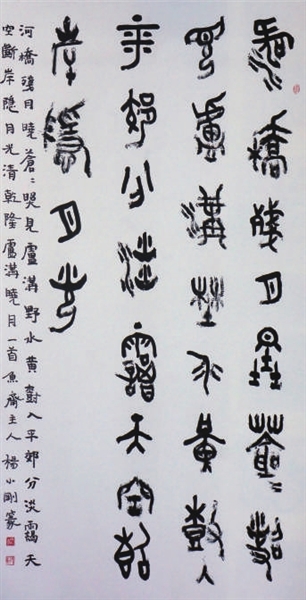 河橋殘月曉蒼〻照
見盧溝野水黃樹入
平郊分淡靄天空斷
岸隱月光
河橋殘月曉蒼〻照見盧溝野水黃樹入平郊分淡靄天
空斷岸隱月光清乾隆盧溝曉月一首魚齋主人楊小剛篆